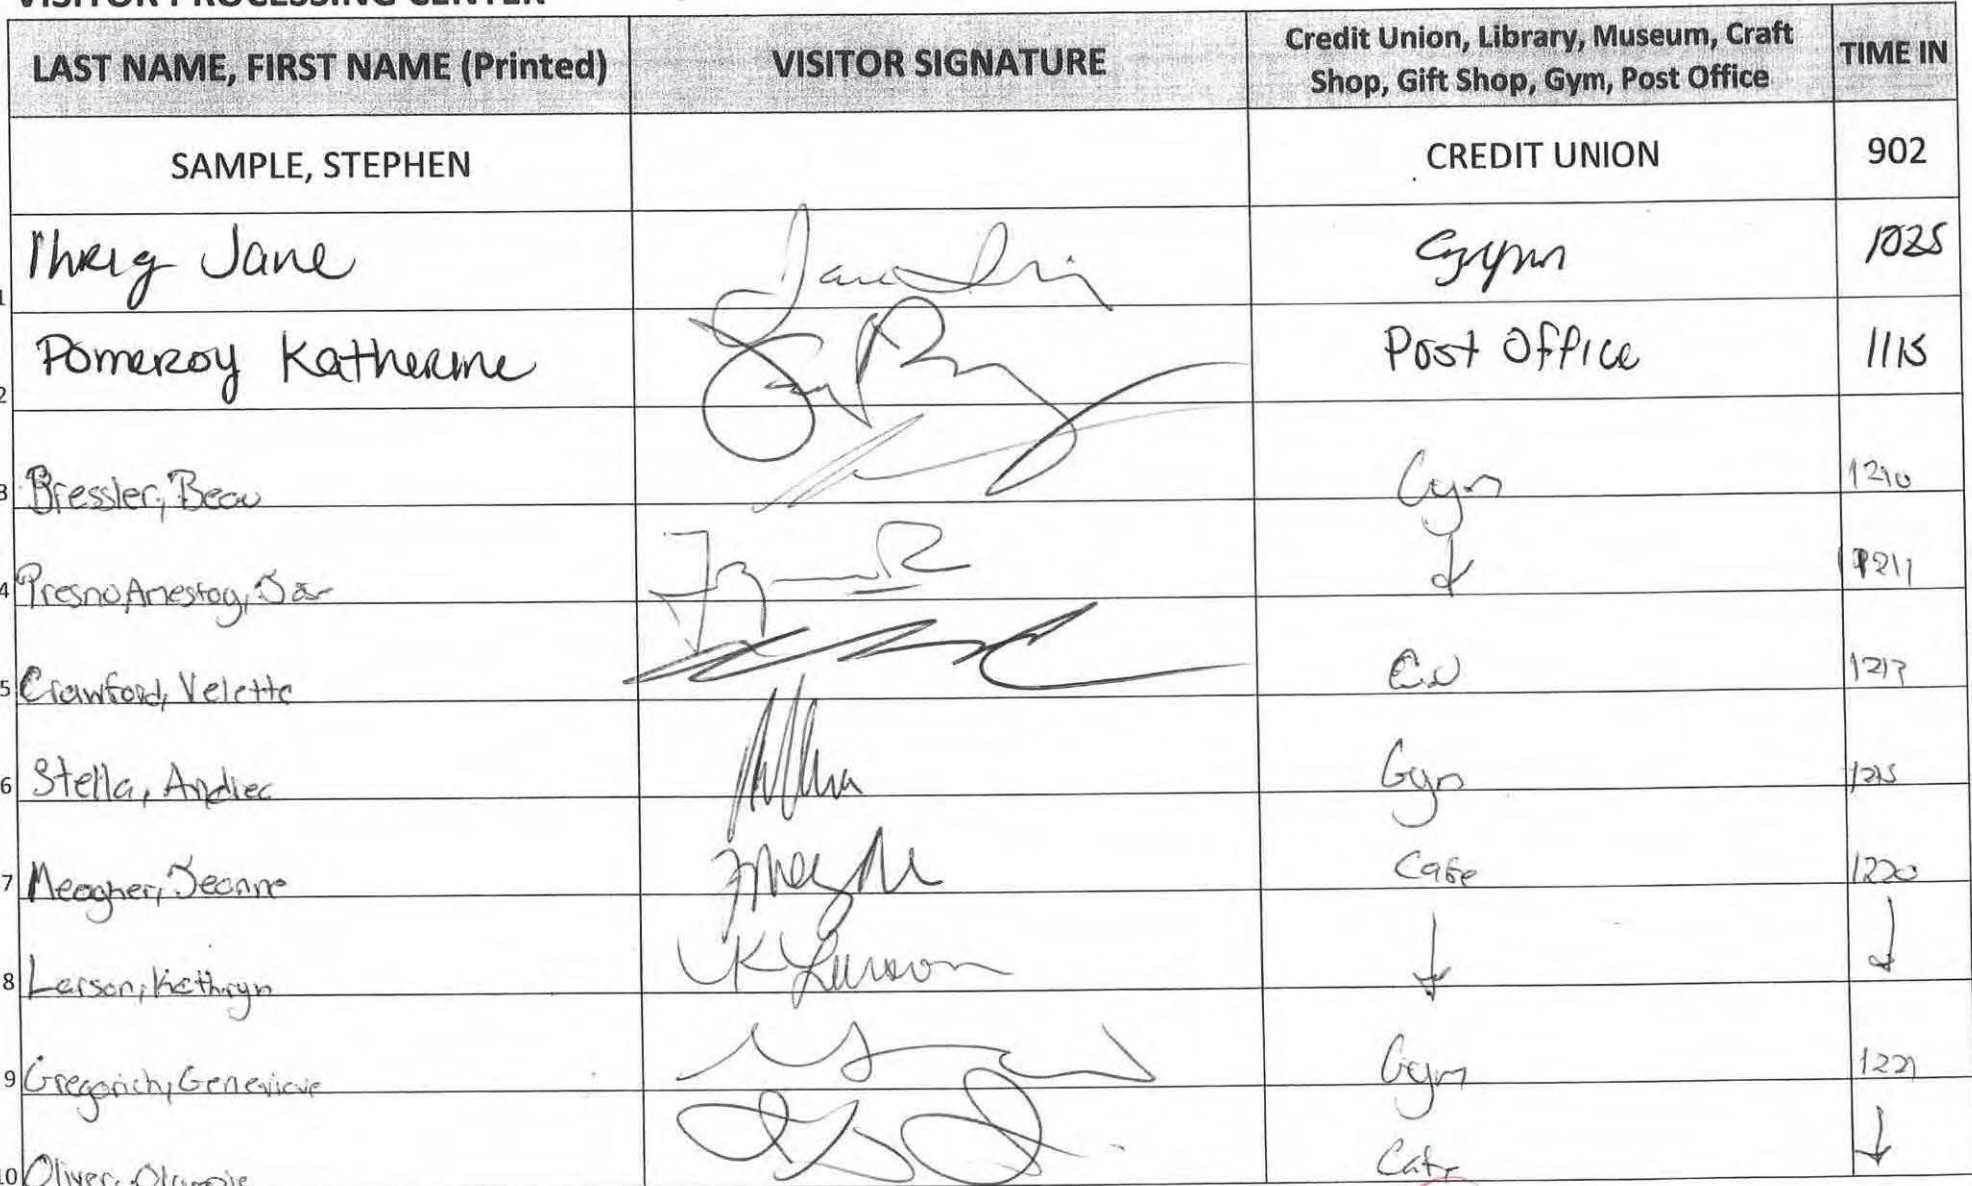 VISITOR PROCESSING CENTER
LAST NAME, FIRST NAME (Printed) VISITOR SIGNATURE Credit Union, Library, Museum, Craft Shop, Gift Shop, Gym, Post Office TIME IN
SAMPLE, STEPHEN CREDIT UNION 902
1 Ihrig Jane Gym 1025
2 Pomeroy Katherine Post Office 1115
3 Bressler, Beau Gym 1210
4 1211
5 Crawford, Velette CU
6 Stella, Andrea Gym 1215
7 Meagher, Jeanne Cafe 1220
8 Larson, Kathryn K Larson
9 Gregorich, Genevieve Gym 1221
10 Oliver, Cafe